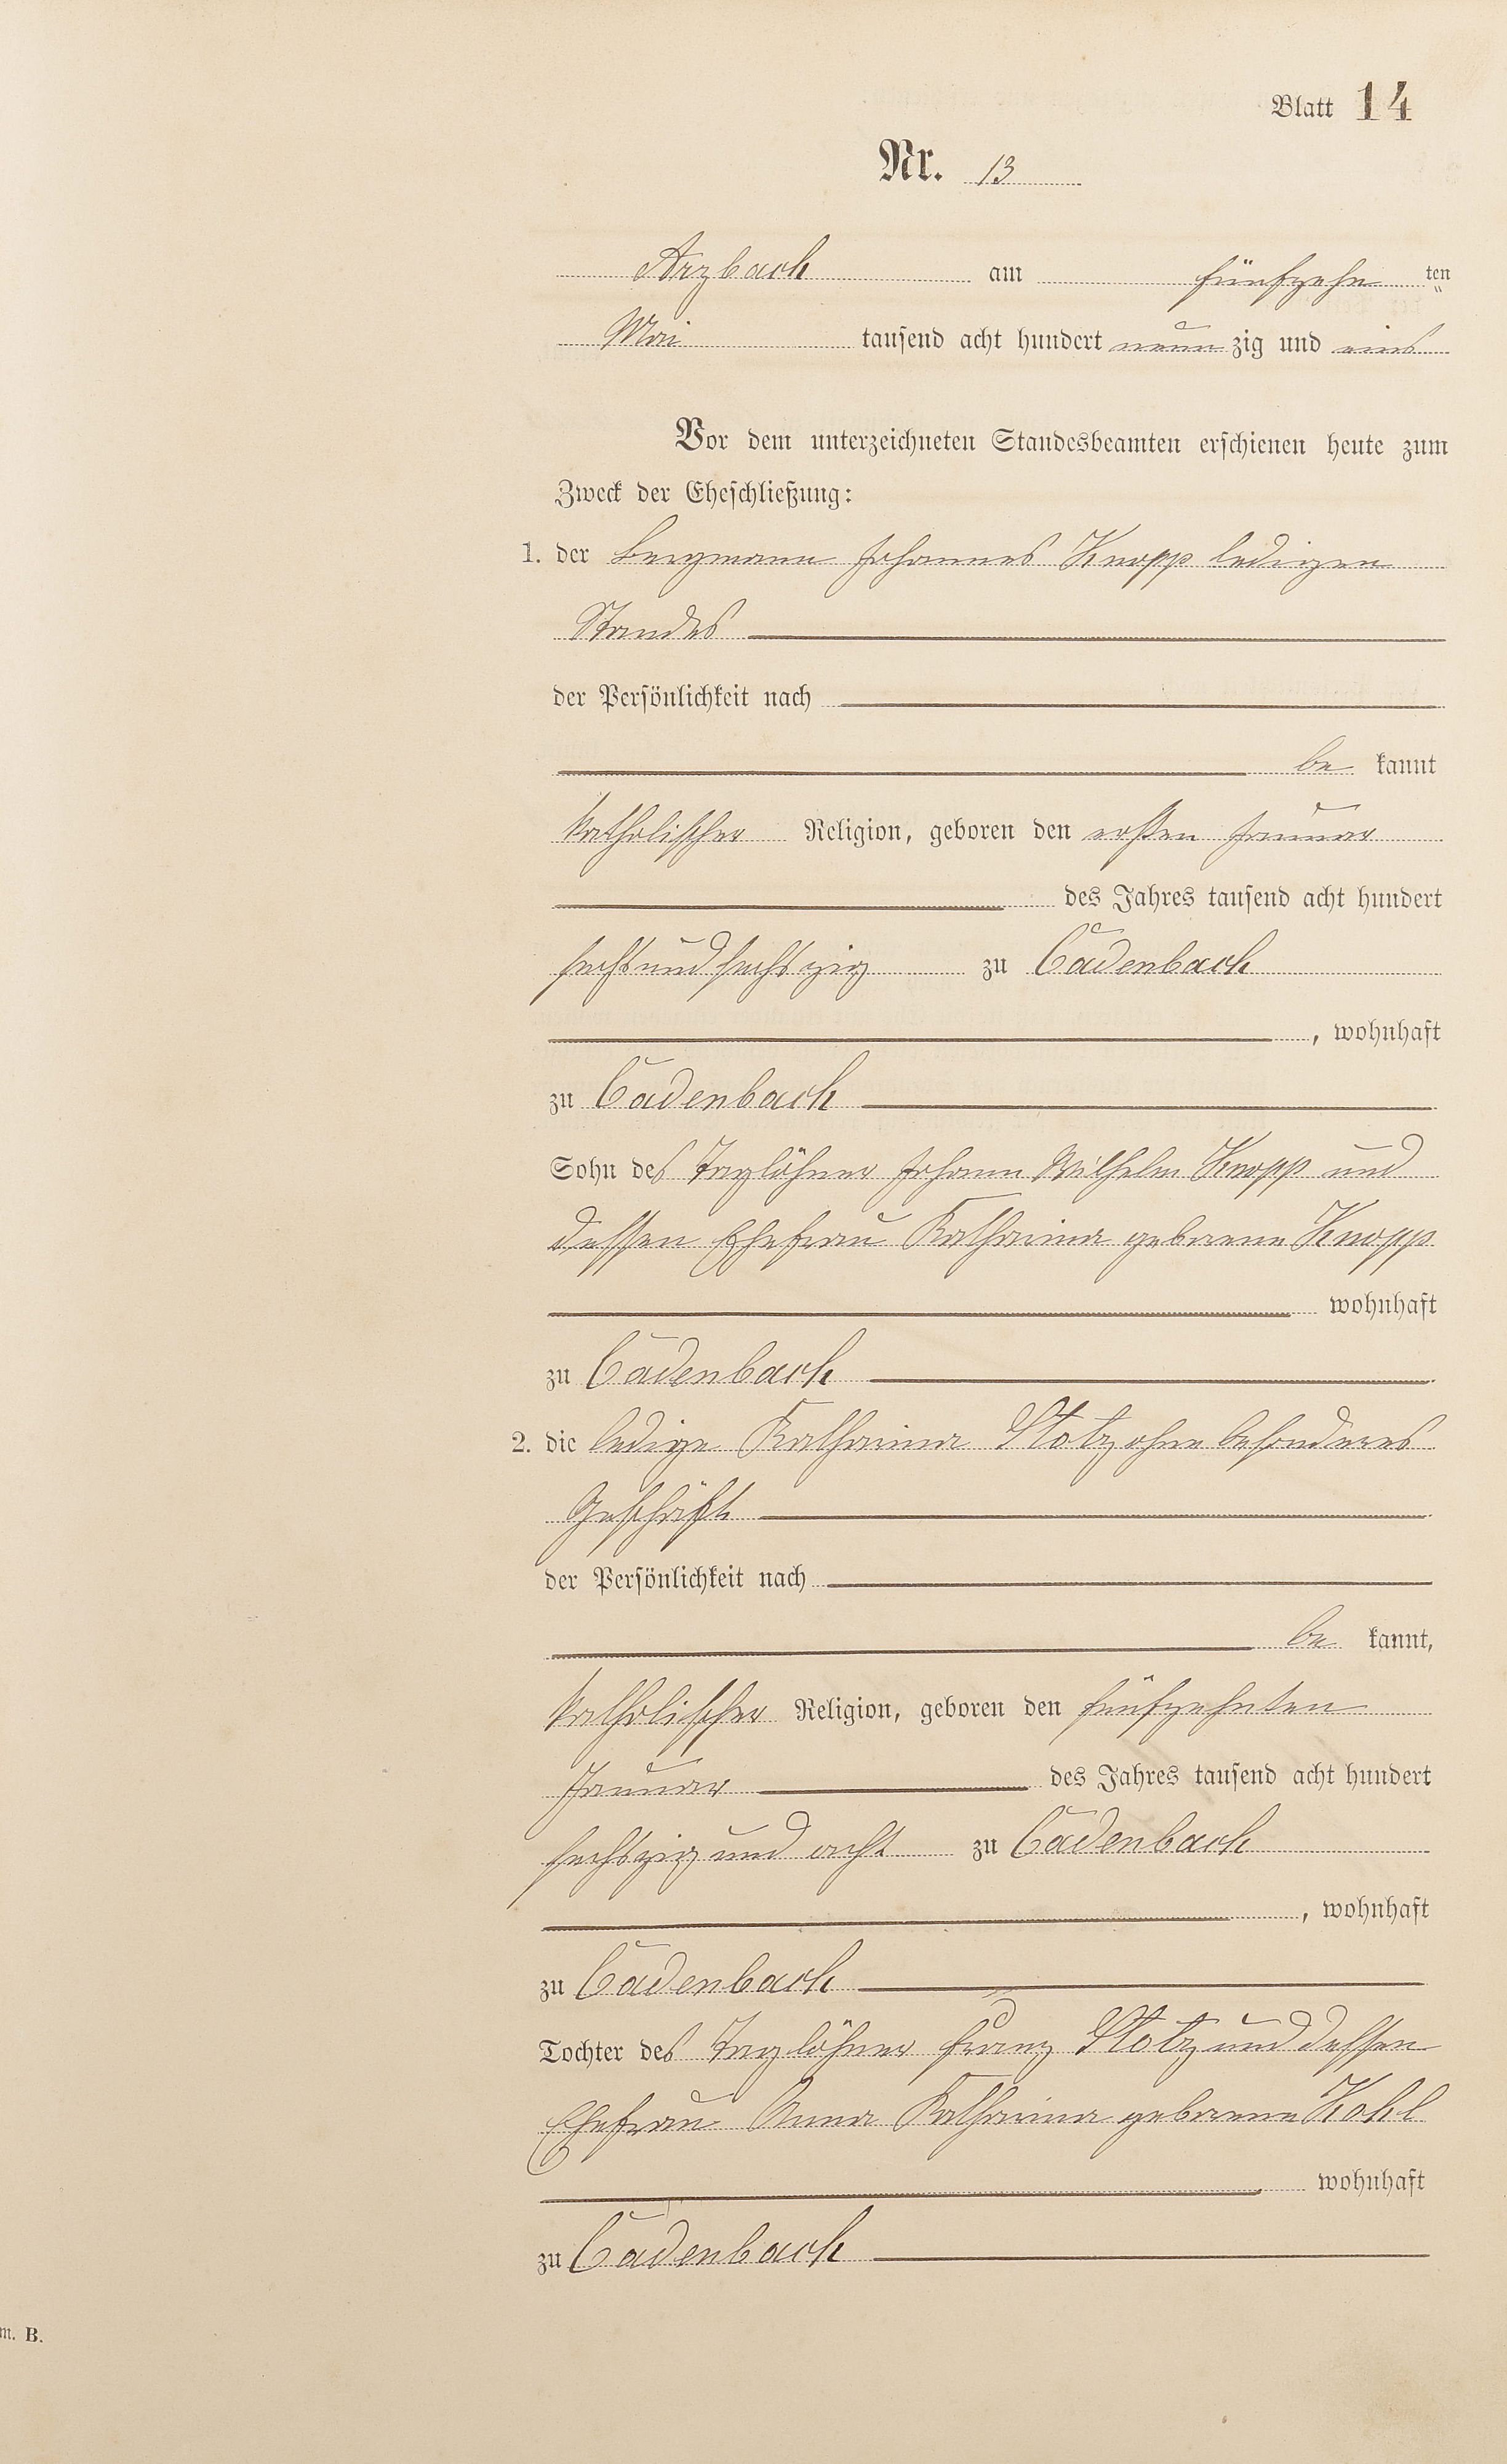 Blatt 14
Nr. 13
Arzbach am fünfzehn ten
Mai tausend acht hundert neun zig und eins
Vor dem unterzeichneten Standesbeamten erschienen heute zum
Zweck der Eheschließung:
1. der Bergmann Johannes Knopp ledigen
Standes
der Persönlichkeit nach
be kannt
katholischer Religion, geboren den ersten Januar
des Jahres tausend acht hundert
sechsundsechszig zu Cadenbach
, wohnhaft
zu Cadenbach
Sohn des Taglöhner Johann Wilhelm Knopp und
dessen Ehefrau Katharina geborene Knopp
wohnhaft
zu Cadenbach
2. die ledige Katharina Stotz ohne besonderes
Geschäft
der Persönlichkeit nach
be kannt,
katholischer Religion, geboren den fünfzehnten
Januar des Jahres tausend acht hundert
sechszig und acht zu Cadenbach
, wohnhaft
zu Cadenbach
Tochter des Taglöhner Franz Stotz und dessen
Ehefrau Anna Katharina geborene Kohl
wohnhaft
zu Cadenbach
m. B.